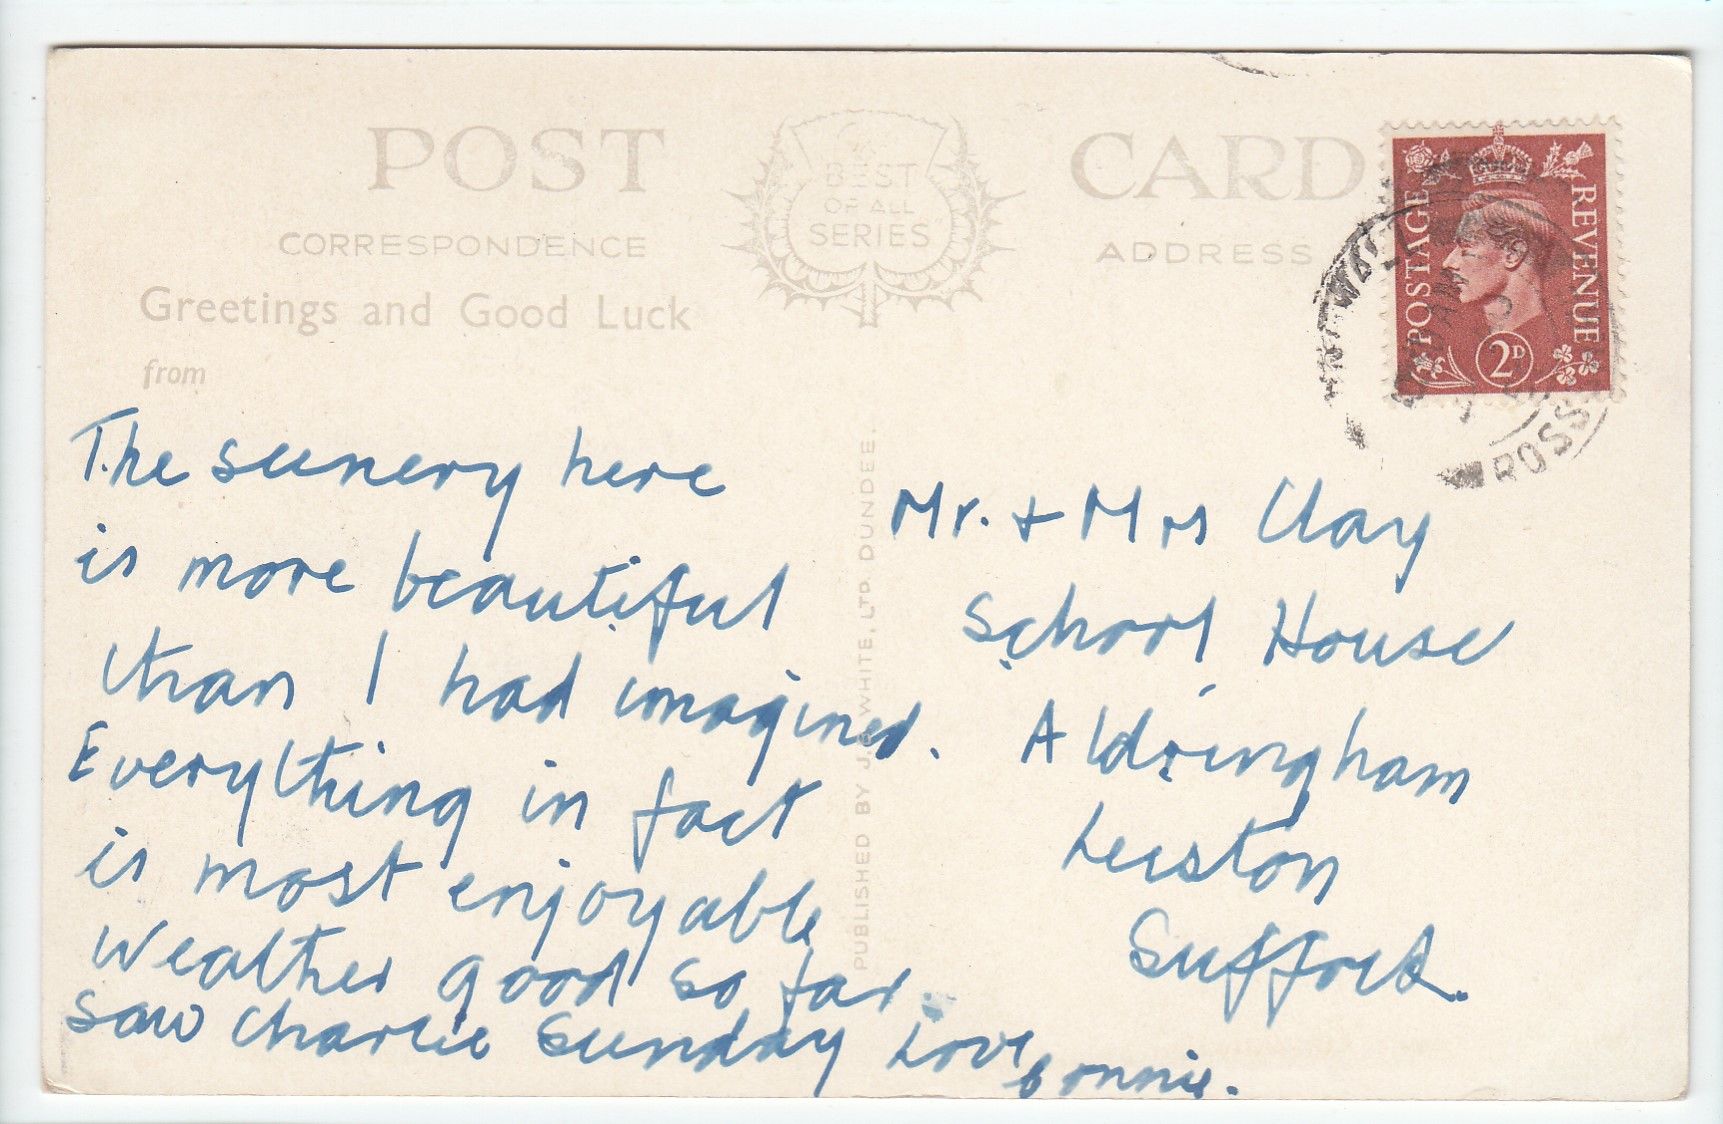 POST CARD
BEST
OF ALL
SERIES
CORRESPONDENCE
ADDRESS
Greetings and Good Luck
from
The scenery here
is more beautiful
than I had imagined.
Everything in fact
is most enjoyable
Weather good so far.
Saw Charlie Sunday Love
Bonnie.
PUBLISHED BY J.B. WHITE, LTD. DUNDEE.
Mr. + Mrs Clay
School House
Aldringham
Leiston
Suffolk.
POSTAGE
REVENUE
2D
ROSS